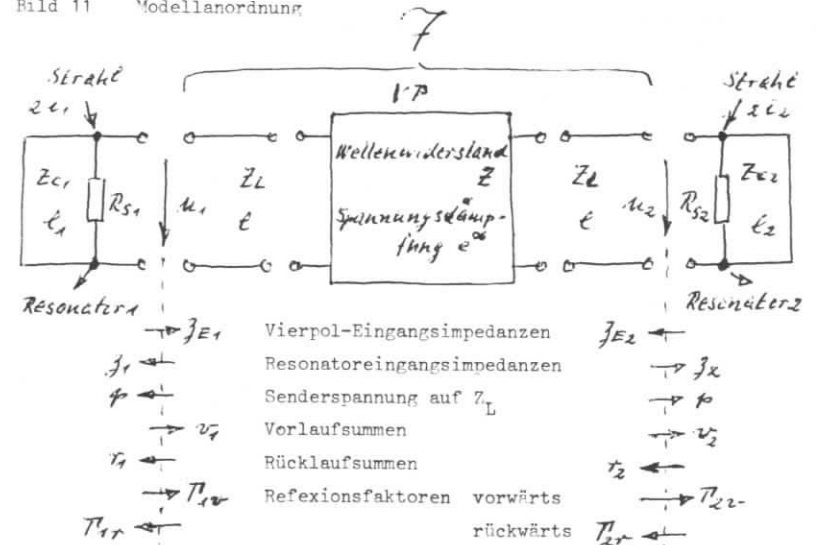 Bild 11 Modellanordnung
7
Strahl
2i₁
VP
Strahl
2i₂
Z_C1
ℓ₁
R_S1
u₁
Z_L
ℓ
Wellenwiderstand
Z
Spannungsdämp-
fung e^α
Z_L
ℓ
u₂
R_S2
Z_C2
ℓ₂
Resonator1
Resonator2
Z_E1 Vierpol-Eingangsimpedanzen Z_E2
Z₁ Resonatoreingangsimpedanzen Z₂
p Senderspannung auf Z_L p
v₁ Vorlaufsummen v₂
r₁ Rücklaufsummen r₂
Γ_1v Refexionsfaktoren vorwärts Γ_2v
Γ_1r rückwärts Γ_2r